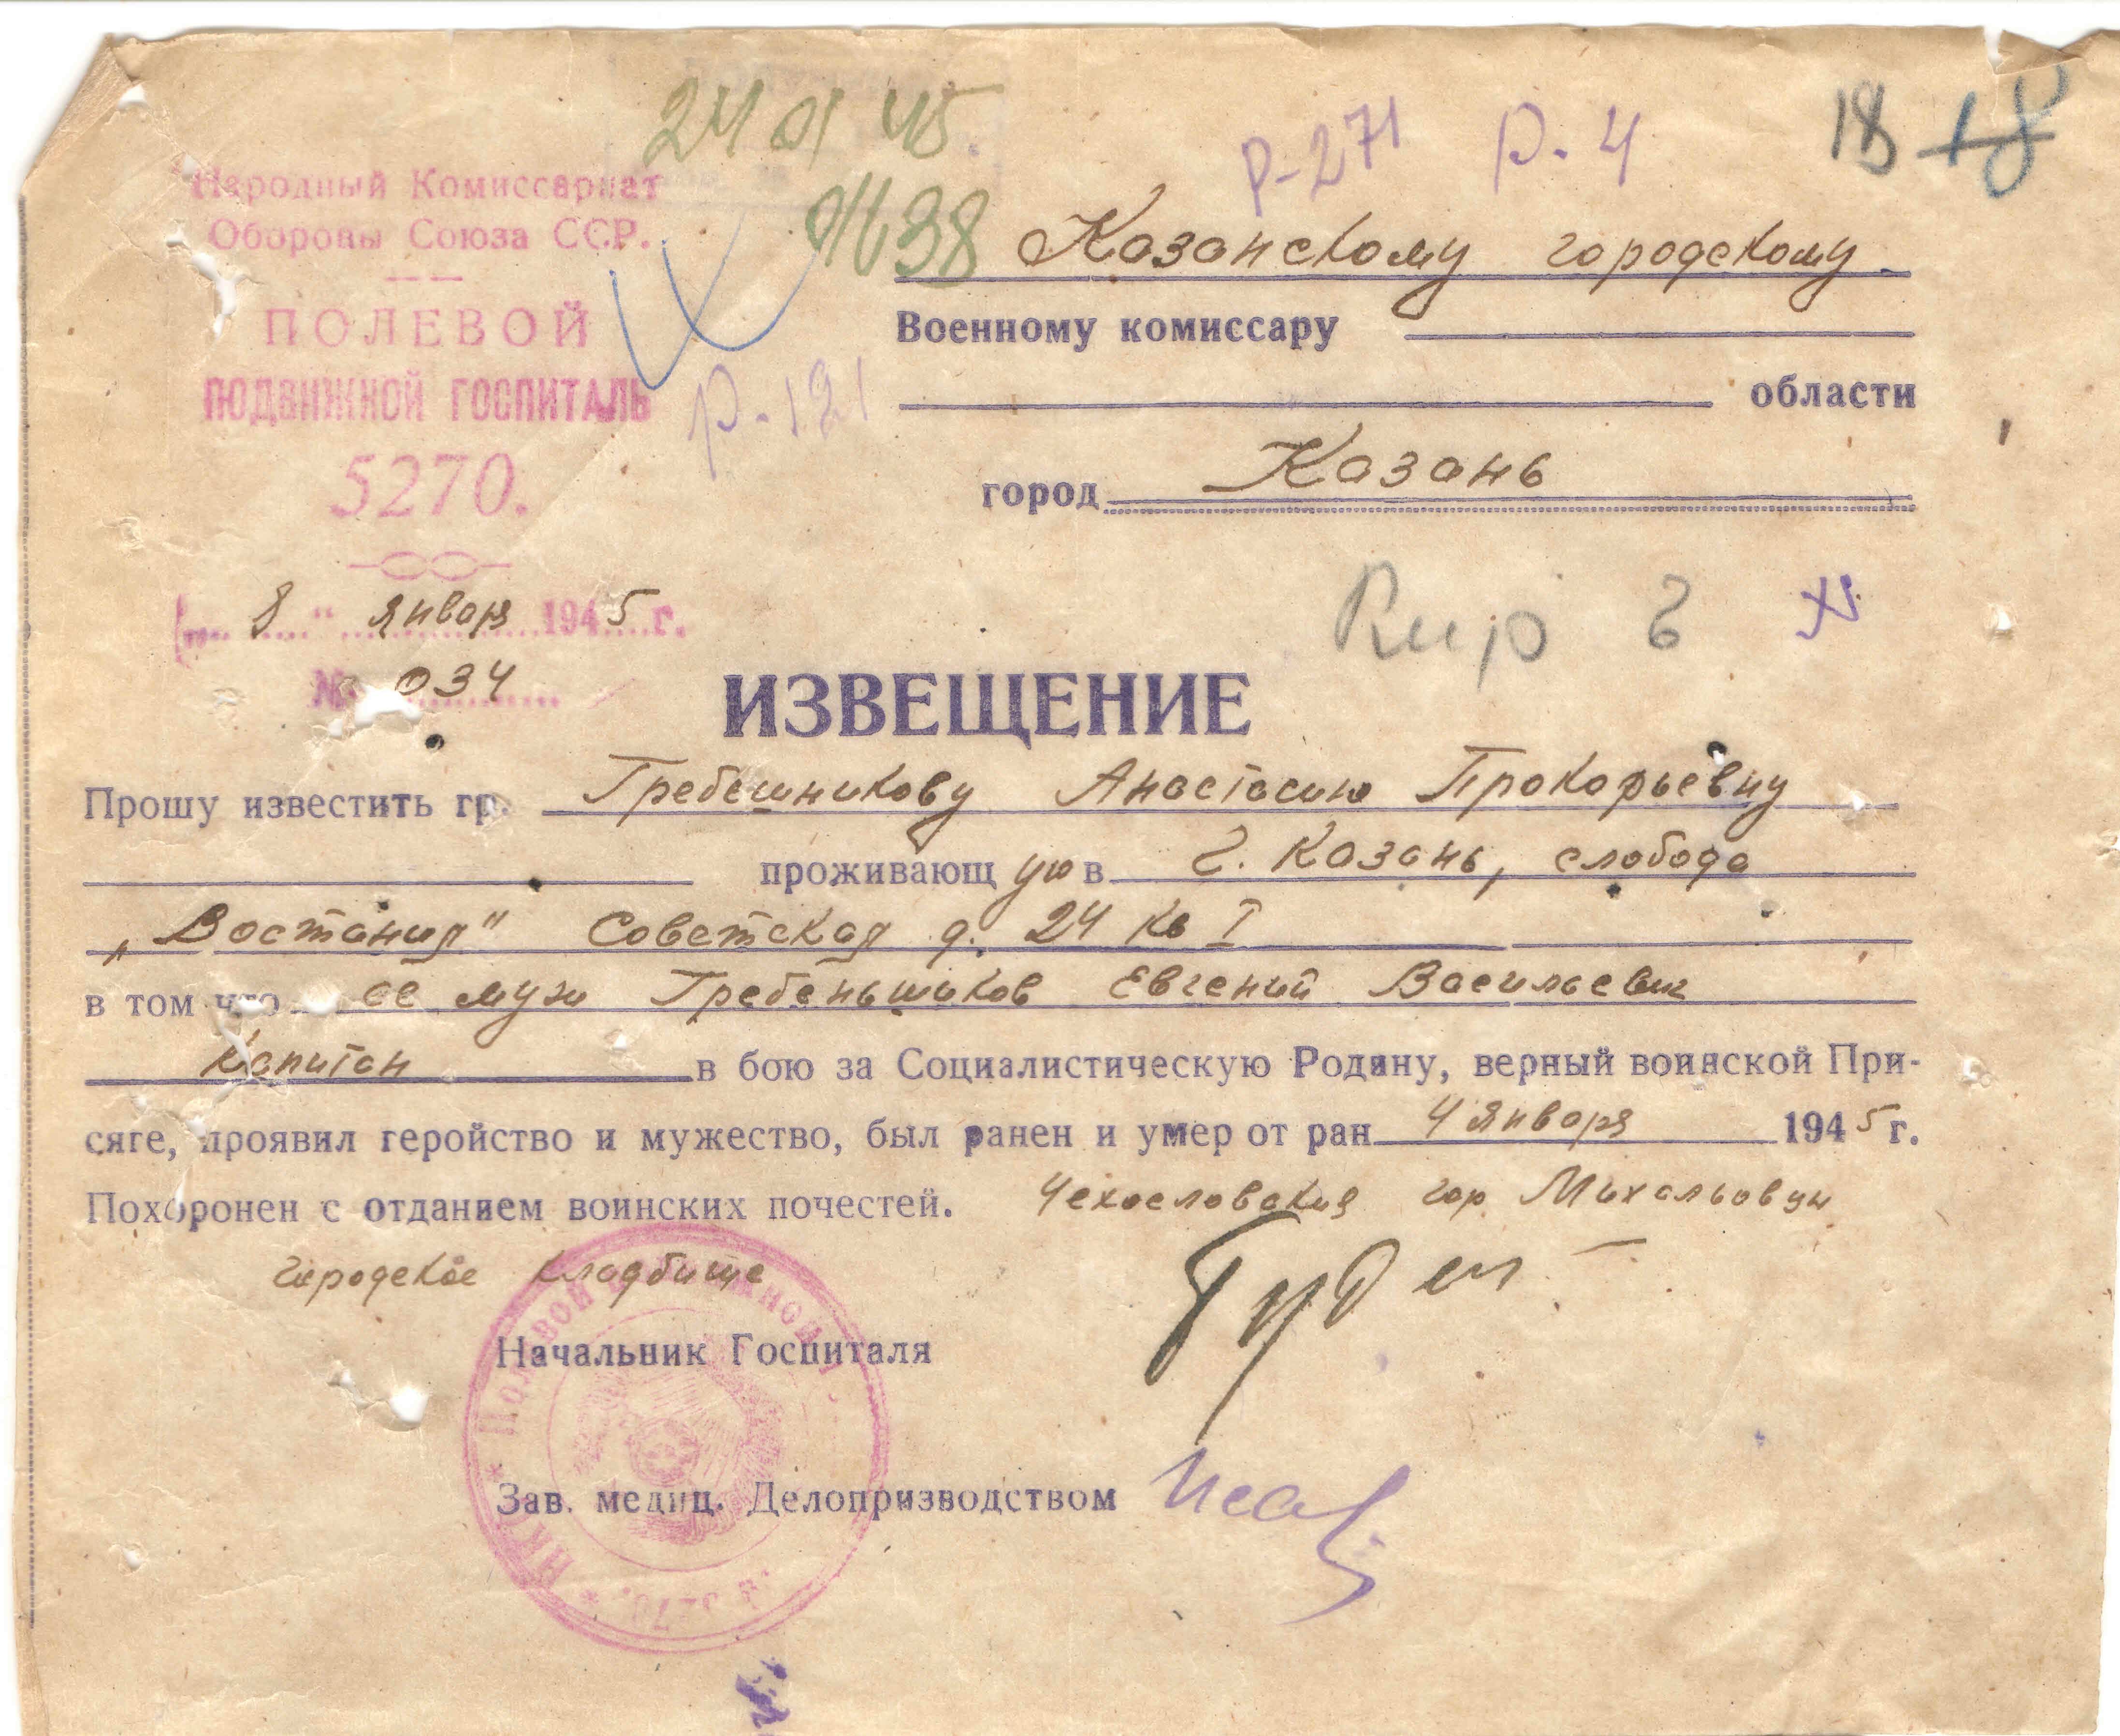 24 01 45.
р-271 р. 4 18 18
Народный Комиссариат
Обороны Союза ССР.
ПОЛЕВОЙ
ПОДВИЖНОЙ ГОСПИТАЛЬ
5270.
р-121
Казанскому городскому
Военному комиссару
области
город Казань
„ 8 " января 1945 г.
№ 034
Кир 6
ИЗВЕЩЕНИЕ
Прошу известить гр. Гребешникову Анастасию Прокофьевну
проживающ ую в г. Казань, слобода
„Востания" Советская д. 24 кв I
в том что её муж Гребеньшиков Евгений Васильевич
Капитан в бою за Социалистическую Родину, верный воинской При-
сяге, проявил геройство и мужество, был ранен и умер от ран 4 января 1945 г.
Похоронен с отданием воинских почестей. Чехословакия гор Михальовцы
городское кладбище
Начальник Госпиталя
Зав. медиц. Делопризводством